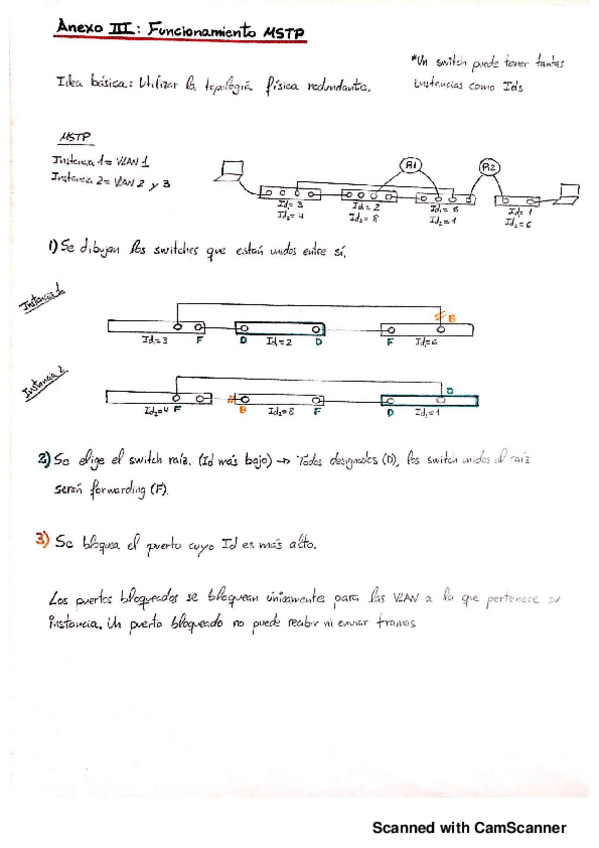 Anexo III: Funcionamiento MSTP
*Un switch puede tener tantas
instancias como Ids
Idea básica: Utilizar la topología física redundante.
MSTP
Instancia 1 = VLAN 1
Instancia 2 = VLAN 2 y 3
R1 R2
Id₁=3 Id₁=2 Id₁=6 Id₁=1
Id₂=4 Id₂=8 Id₂=1 Id₂=6
1) Se dibujan los switches que estan unidos entre sí.
Instancia 1
B
Id₁=3 F D Id₁=2 D F Id₁=6
Instancia 2
D
Id₂=4 F B Id₂=8 F D Id₂=1
2) Se elige el switch raíz. (Id más bajo) → Todos designados (D), los switch unidos al raíz
serán forwarding (F).
3) Se bloquea el puerto cuyo Id es más alto.
Los puertos bloqueados se bloquean únicamente para las VLAN a la que pertenece su
instancia. Un puerto bloqueado no puede recibir ni enviar tramas
Scanned with CamScanner